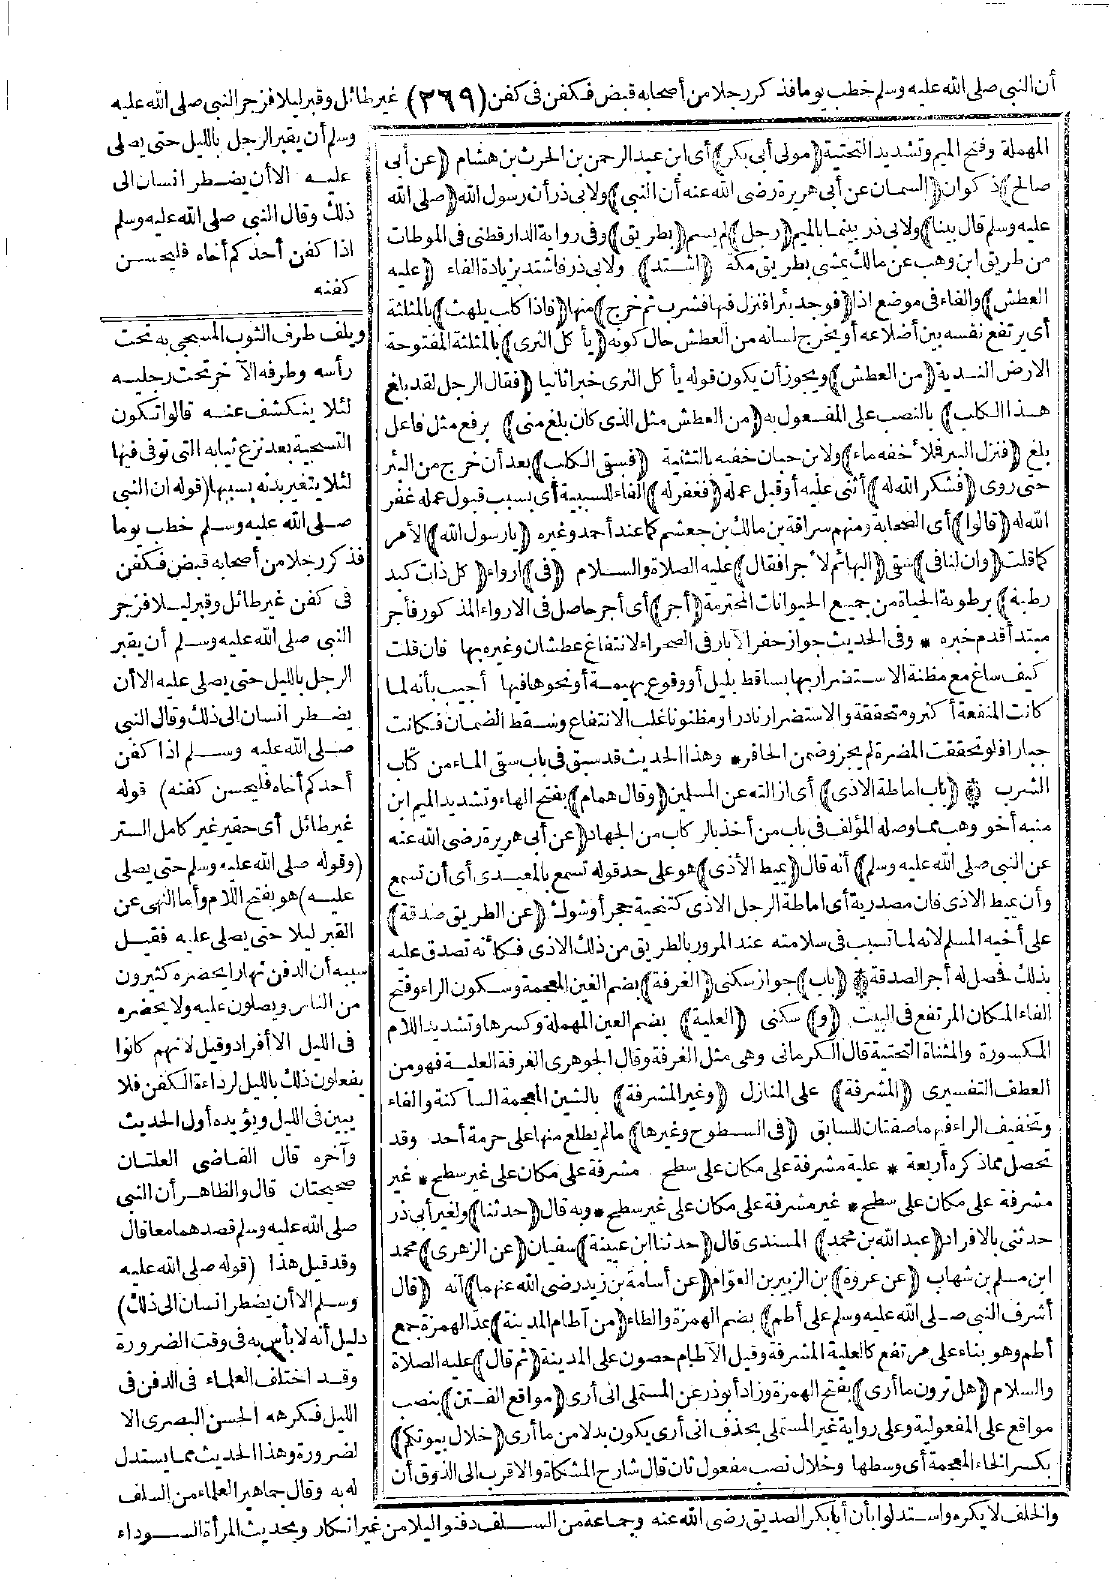 أن النبى صلى الله عليه وسلم خطب يوما فذكر رجلا من أصحابه قبض فكفن فى كفن (٢٦٩) غير طائل وقبر ليلا فزجر النبى صلى الله عليه
وسلم أن يقبر الرجل بالليل حتى يصلى
عليه الا أن يضطر انسان الى
ذلك وقال النبى صلى الله عليه وسلم
اذا كفن أحدكم أخاه فليحسن
كفنه
ويلف طرف الثوب المسجى به تحت
رأسه وطرفه الآخر تحت رجليه
لئلا ينكشف عنه قالوا تكون
التسجية بعد نزع ثيابه التى توفى فيها
لئلا يتغير بدنه بسببها (قوله ان النبى
صلى الله عليه وسلم خطب يوما
فذكر رجلا من أصحابه قبض فكفن
فى كفن غير طائل وقبر ليلا فزجر
النبى صلى الله عليه وسلم أن يقبر
الرجل بالليل حتى يصلى عليه الا أن
يضطر انسان الى ذلك وقال النبى
صلى الله عليه وسلم اذا كفن
أحدكم أخاه فليحسن كفنه) قوله
غير طائل أى حقير غير كامل الستر
(وقوله صلى الله عليه وسلم حتى يصلى
عليه) هو بفتح اللام وأما النهى عن
القبر ليلا حتى يصلى عليه فقيل
سببه أن الدفن نهارا يحضره كثيرون
من الناس ويصلون عليه ولا يحضره
فى الليل الا أفراد وقيل لانهم كانوا
يفعلون ذلك بالليل لرداءة الكفن فلا
يبين فى الليل ويؤيده أول الحديث
وآخره قال القاضى العلتان
صحيحتان قال والظاهر أن النبى
صلى الله عليه وسلم قصدهما معا قال
وقد قيل هذا (قوله صلى الله عليه
وسلم الا أن يضطر انسان الى ذلك)
دليل أنه لا بأس به فى وقت الضرورة
وقد اختلف العلماء فى الدفن فى
الليل فكرهه الحسن البصرى الا
لضرورة وهذا الحديث مما يستدل
له به وقال جماهير العلماء من السلف
المهملة وفتح الميم وتشديد التحتية (مولى أبى بكر) أى ابن عبد الرحمن بن الحرث بن هشام (عن أبى
صالح) ذكوان (السمان عن أبى هريرة رضى الله عنه أن النبى) ولابى ذر أن رسول الله (صلى الله
عليه وسلم قال بينا) ولابى ذر بينما بالميم (رجل) لم يسم (بطريق) وفى رواية الدارقطنى فى الموطات
من طريق ابن وهب عن مالك يمشى بطريق مكة (اشتد) ولابى ذر فاشتد بزيادة الفاء (عليه
العطش) والفاء فى موضع اذا (فوجد بئرا فنزل فيها فشرب ثم خرج) منها (فاذا كلب يلهث) بالمثلثة
أى يرتفع نفسه بين أضلاعه أو يخرج لسانه من العطش حال كونه (يأكل الثرى) بالمثلثة المفتوحة
الارض الندية (من العطش) ويجوز أن يكون قوله يأكل الثرى خبرا ثانيا (فقال الرجل لقد بلغ
هذا الكلب) بالنصب على المفعول به (من العطش مثل الذى كان بلغ منى) برفع مثل فاعل
بلغ (فنزل البئر فملأ خفه ماء) ولابن حبان خفيه بالتثنية (فسقى الكلب) بعد أن خرج من البئر
حتى روى (فشكر الله له) أثنى عليه أو قبل عمله (فغفر له) الفاء للسببية أى بسبب قبول عمله غفر
الله له (قالوا) أى الصحابة ومنهم سراقة بن مالك بن جعشم كما عند أحمد وغيره (يا رسول الله) الأمر
كما قلت (وان لنا فى) سقى (البهائم لأجرا فقال) عليه الصلاة والسلام (فى) ارواء (كل ذات كبد
رطبة) برطوبة الحياة من جميع الحيوانات المحترمة (أجر) أى أجر حاصل فى الارواء المذكور فأجر
مبتدأ قدم خبره * وفى الحديث جواز حفر الآبار فى الصحراء لانتفاع عطشان وغيره بها فان قلت
كيف ساغ مع مظنة الاستضرار بها بساقط بليل أو وقوع بهيمة أو نحوها فيها أجيب بأنه لما
كانت المنفعة أكثر ومتحققة والاستضرار نادرا ومظنونا غلب الانتفاع وسقط الضمان فكانت
جبارا فلو تحققت المضرة لم يجز وضمن الحافر * وهذا الحديث قد سبق فى باب سقى الماء من كتاب
الشرب * (باب اماطة الاذى) أى ازالته عن المسلمين (وقال همام) بفتح الهاء وتشديد الميم ابن
منبه أخو وهب مما وصله المؤلف فى باب من أخذ بالركاب من الجهاد (عن أبى هريرة رضى الله عنه
عن النبى صلى الله عليه وسلم) أنه قال (يميط الأذى) هو على حد قوله تسمع بالمعيدى أى أن تسمع
وأن يميط الاذى فان مصدرية أى اماطة الرجل الاذى كتنحية حجر أو شوك (عن الطريق صدقة)
على أخيه المسلم لانه لما تسبب فى سلامته عند المرور بالطريق من ذلك الاذى فكأنه تصدق عليه
بذلك فحصل له أجر الصدقة * (باب) جواز سكنى (الغرفة) بضم الغين المعجمة وسكون الراء وفتح
الفاء المكان المرتفع فى البيت (و) سكنى (العلية) بضم العين المهملة وكسرها وتشديد اللام
المكسورة والمثناة التحتية قال الكرمانى وهى مثل الغرفة وقال الجوهرى الغرفة العلية فهو من
العطف التفسيرى (المشرفة) على المنازل (وغير المشرفة) بالشين المعجمة الساكنة والفاء
وتخفيف الراء فيهما صفتان للسابق (فى السطوح وغيرها) ما لم يطلع منها على حرمة أحد وقد
تحصل مما ذكره أربعة * علية مشرفة على مكان على سطح * مشرفة على مكان على غير سطح * غير
مشرفة على مكان على سطح * غير مشرفة على مكان على غير سطح * وبه قال (حدثنا) ولغير أبى ذر
حدثنى بالافراد (عبد الله بن محمد) المسندى قال (حدثنا ابن عيينة) سفيان (عن الزهرى) محمد
ابن مسلم بن شهاب (عن عروة) بن الزبير بن العوام (عن أسامة بن زيد رضى الله عنهما) أنه (قال
أشرف النبى صلى الله عليه وسلم على أطم) بضم الهمزة والطاء (من آطام المدينة) بمد الهمزة جمع
أطم وهو بناء على مرتفع كالعلية المشرفة وقيل الآطام حصون على المدينة (ثم قال) عليه الصلاة
والسلام (هل ترون ما أرى) بفتح الهمزة وزاد أبو ذر عن المستملى انى أرى (مواقع الفتن) بنصب
مواقع على المفعولية وعلى رواية غير المستملى بحذف انى أرى يكون بدلا من ما أرى (خلال بيوتكم)
بكسر الخاء المعجمة أى وسطها وخلال نصب مفعول ثان قال شارح المشكاة والاقرب الى الذوق أن
والخلف لا يكره واستدلوا بأن أبا بكر الصديق رضى الله عنه وجماعة من السلف دفنوا ليلا من غير انكار وبحديث المرأة السوداء